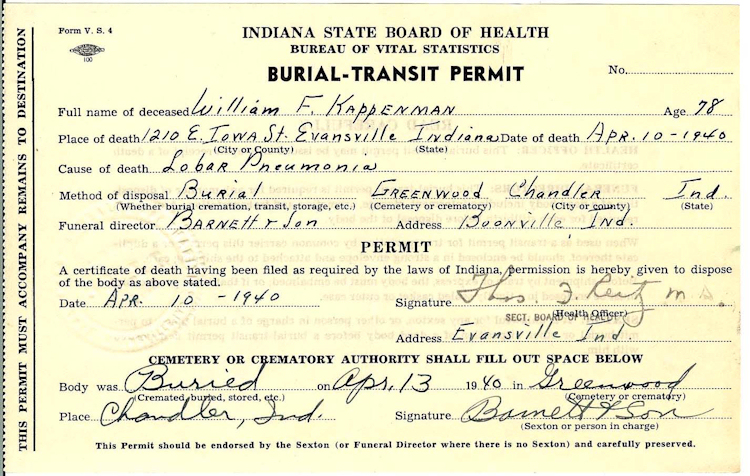 Form V. S. 4
100
INDIANA STATE BOARD OF HEALTH
BUREAU OF VITAL STATISTICS
BURIAL-TRANSIT PERMIT
No.
Full name of deceased William F. Kappenman Age 78
Place of death 1210 E. Iowa St. Evansville Indiana Date of death Apr. 10-1940
(City or County) (State)
Cause of death Lobar Pneumonia
Method of disposal Burial Greenwood Chandler Ind.
(Whether burial cremation, transit, storage, etc.) (Cemetery or crematory) (City or county) (State)
Funeral director Barnett & Son Address Boonville Ind.
PERMIT
A certificate of death having been filed as required by the laws of Indiana, permission is hereby given to dispose
of the body as above stated.
Date Apr. 10-1940 Signature Thos. F. Reitz M.D.
SECT. BOARD OF HEALTH
(Health Officer)
Address Evansville Ind
CEMETERY OR CREMATORY AUTHORITY SHALL FILL OUT SPACE BELOW
Body was Buried on Apr. 13 1940 in Greenwood
(Cremated, buried, stored, etc.) (Cemetery or crematory)
Place Chandler, Ind. Signature Barnett & Son
(Sexton or person in charge)
This Permit should be endorsed by the Sexton (or Funeral Director where there is no Sexton) and carefully preserved.
THIS PERMIT MUST ACCOMPANY REMAINS TO DESTINATION